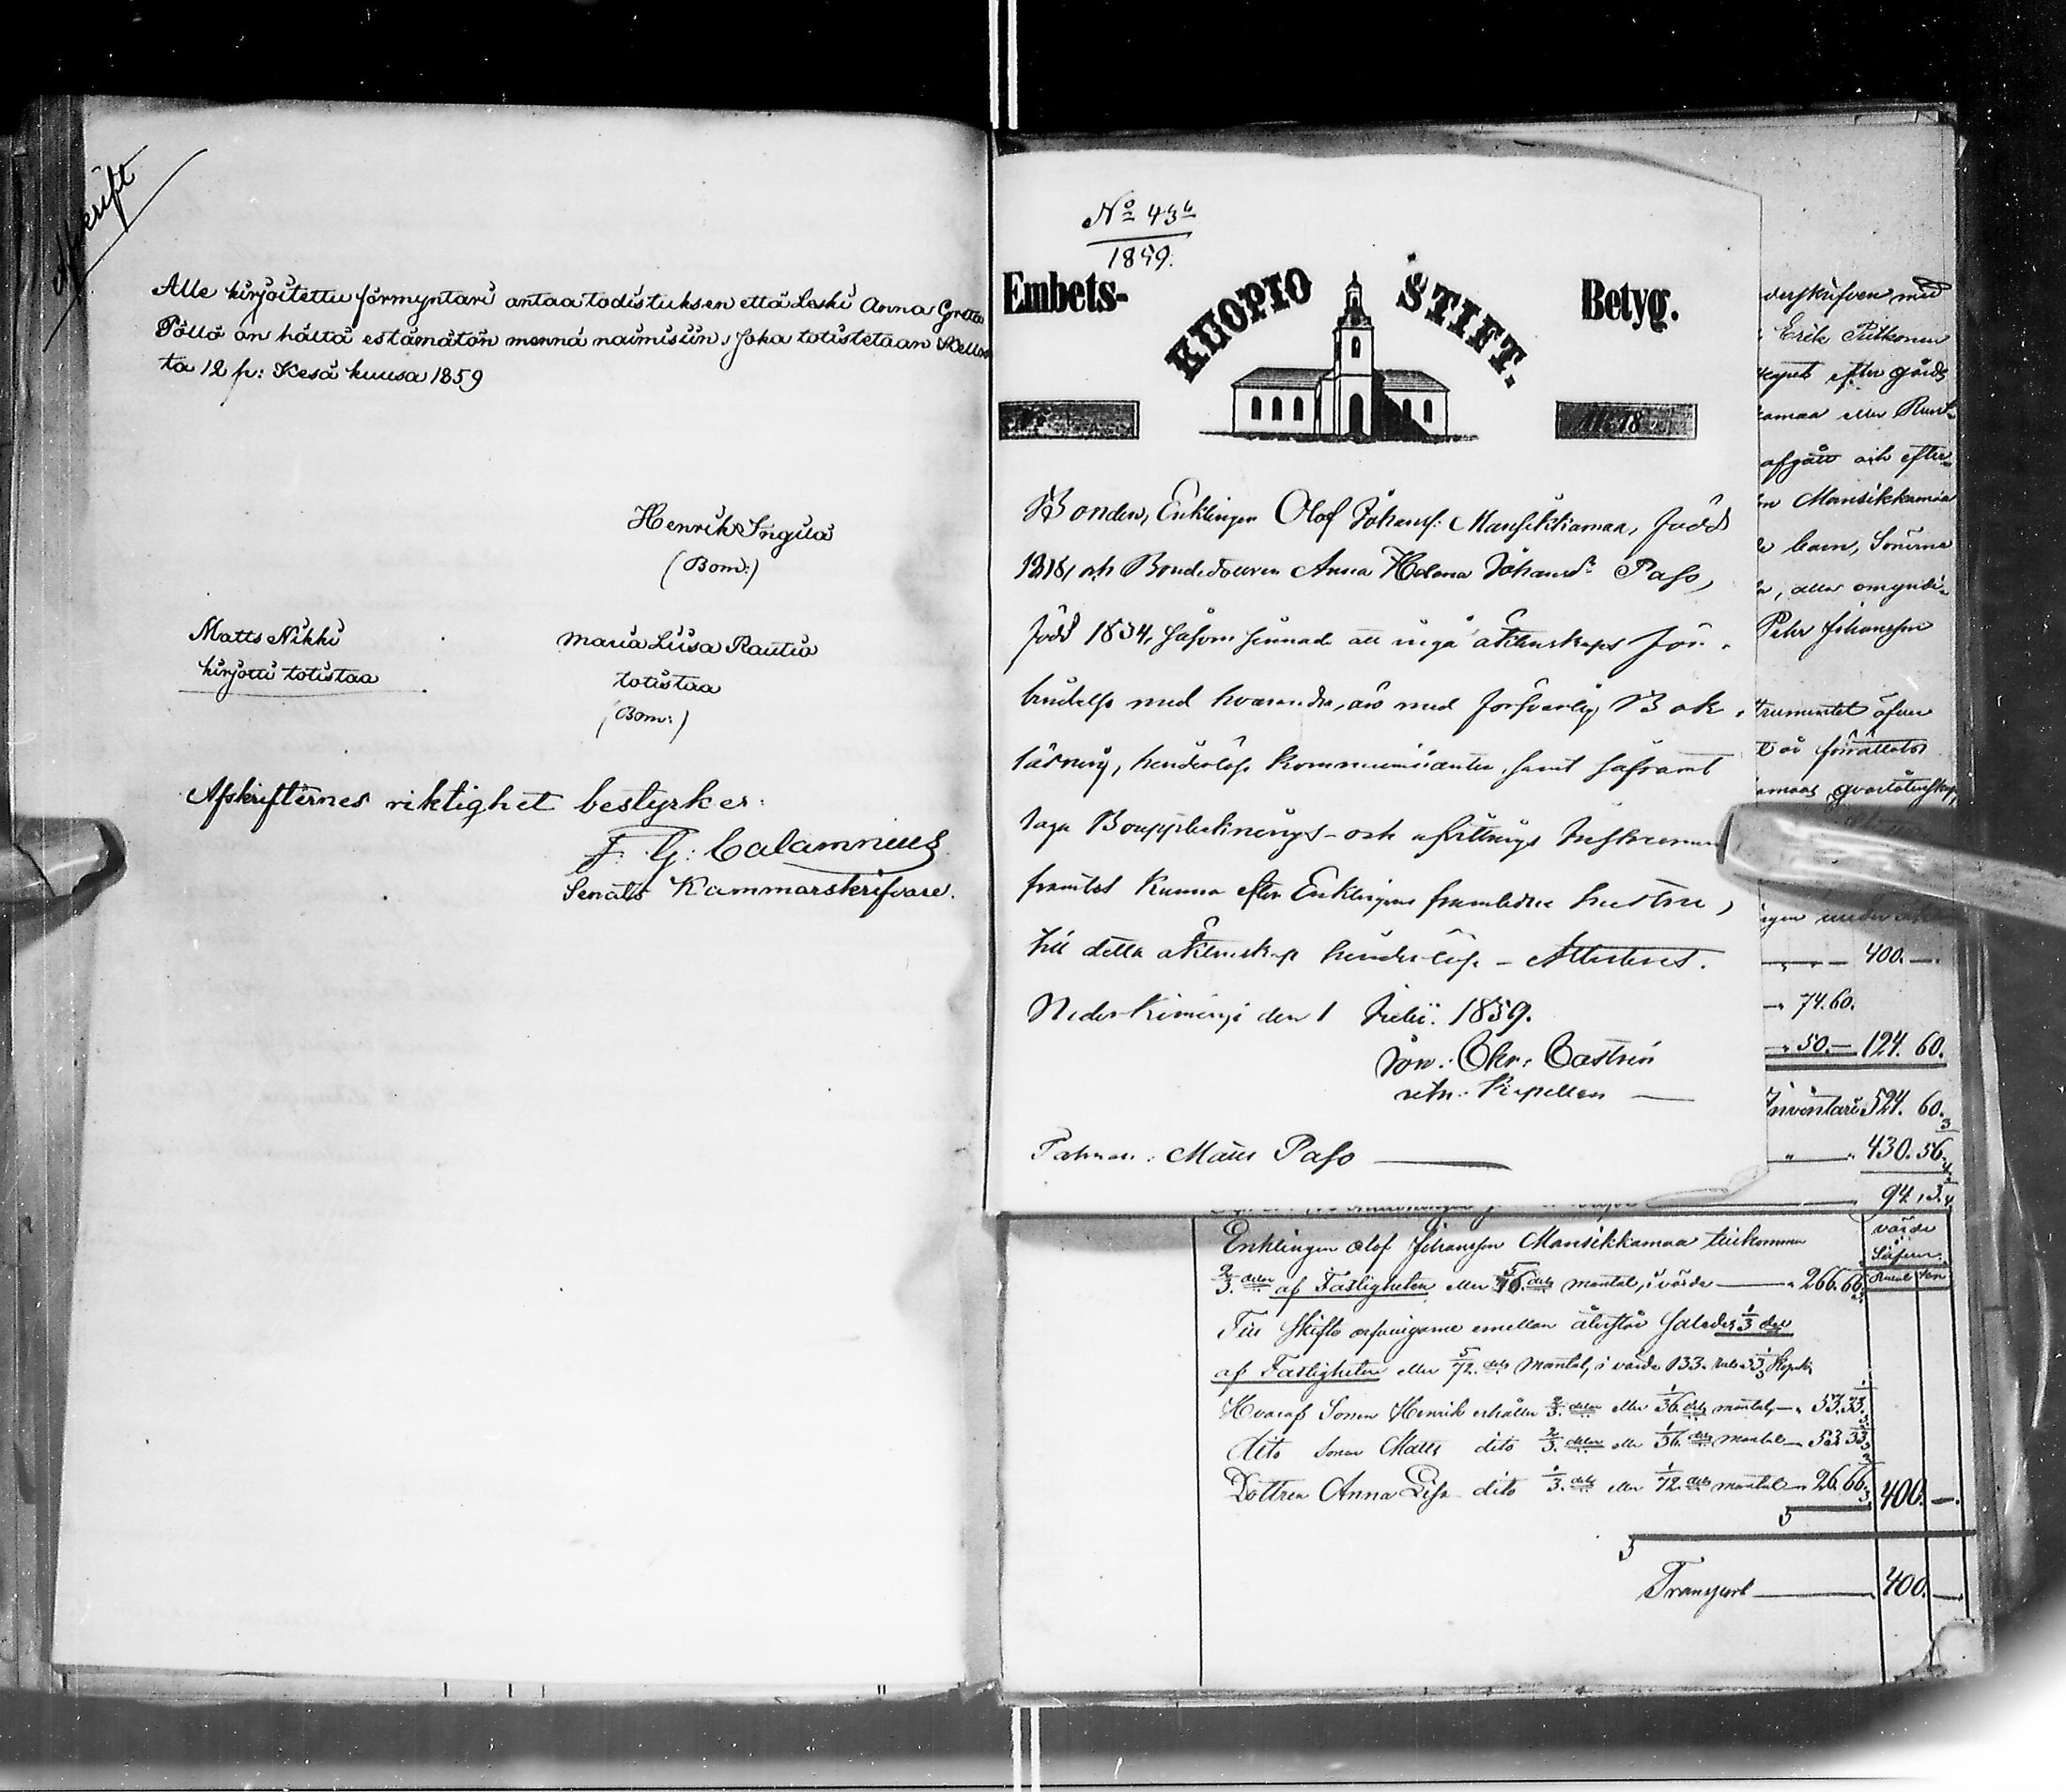 Afskrift
Alle kirjoitettu förmyntari antaa todistuksen että Leski Anna Greta
Pöllä on hältä estämätön mennä naimisiin, Joka totistetaan Kellos
ta 12 p: Kesä kuusa 1859
Henrik Ingilä
(Bom:)
Matts Nikki
kirjotti totistaa
Maria Liisa Rautio
totistaa
(Bom:)
Afskrifternes riktighet bestyrker:
F. G: Calamnius
Senats Kammarskrifvare.
No 436
1859.
Embets- KUOPIO STIFT. Betyg.
Bonden, Enklingen Olof Johanss: Mansikkamaa, född
1818, och Bondedottren Anna Helena Johansdr Paso,
född 1834, såsom sinnade att ingå äktenskaps för-
bindelse med hvarandra, äro med försvarlig Bok-
läsning, hinderlöse kommunicanter samt såframt
laga Bouppteckning- och afvittrings Instrument
framtes kunna efter Enklingens framledne hustru,
till detta äktenskap hinderlöse - Attesteras.
Nederkiminge den 1 Julii. 1859.
Jon: Chr: Castrén
vice: Kapellan
Talman: Matts Paso
derskrifven med
Erik Pitkonen
efter gårds
kamaa eller Rant-
afgått och efter-
Mansikkamaa
barn, Sönerne
, alla omyndi-
Pehr Johansson
trumentet öfver
förrättats
400. —
74. 60.
50. — 124. 60.
Inventarie 524. 60.
430. 56
94. 3
Enklingen Olof Johansson Mansikkamaa tillkommer
2/3. delar af Fastigheten eller 5/36. dels mantal, i värde — 266. 66
värde
Silfver.
Rubel Kop
Till skifte arfvingarne emellan återstår således 1/3 del
af Fastigheten eller 5/72. dels Mantal, i värde 133. Rub. 33 1/3 Kopek
Hvaraf Sonen Henrik erhåller 2/5. delar eller 1/36. dels mantal — 53. 33.
dito Sonen Matts dito 2/5. delar eller 1/36. dels mantal — 53. 33
Dottren Anna Lisa dito 1/5. dels eller 1/72. dels mantal — 26. 66 400. —
Transport — 400. —